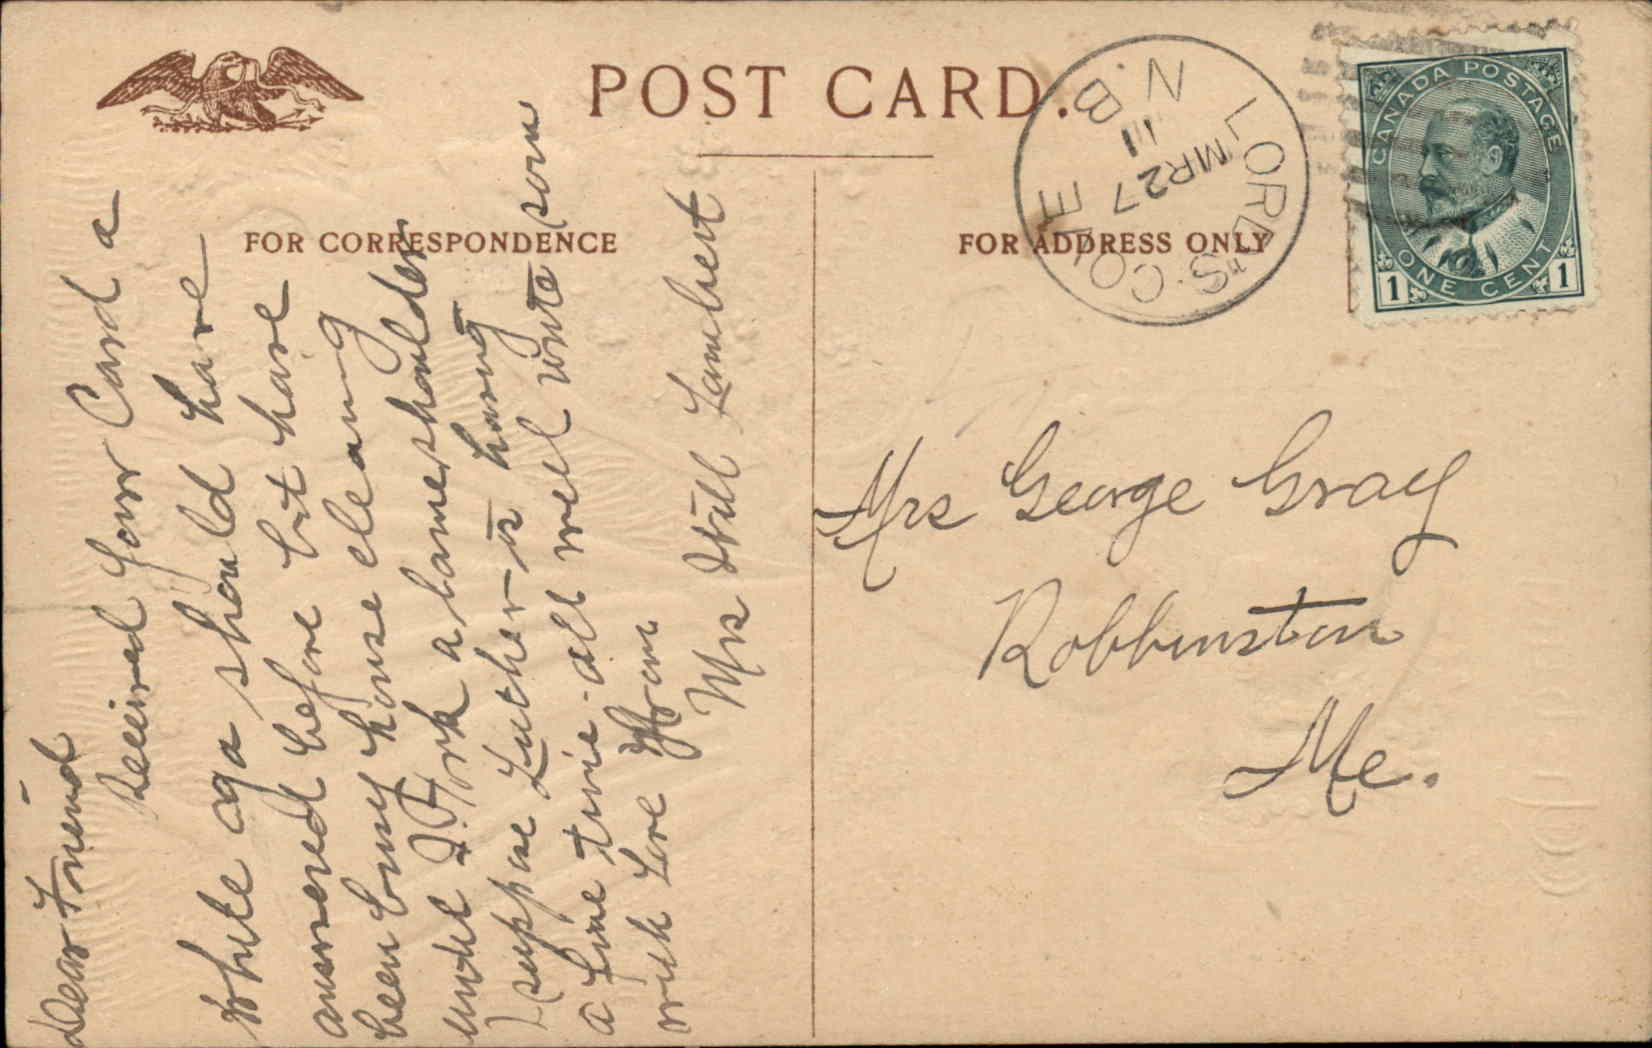 POST CARD.
FOR CORRESPONDENCE
FOR ADDRESS ONLY
LORD'S COVE
N.B.
MR 27
11
CANADA POSTAGE
ONE CENT
1 1
Dear Friend
Received your Card a
while ago should have
answered before but have
been busy house cleaning
until I got a lame shoulder
I suppose Luther is having
a fine time. all well write soon
with Love From
Mrs Will Lambert
Mrs George Gray
Robbinston
Me.